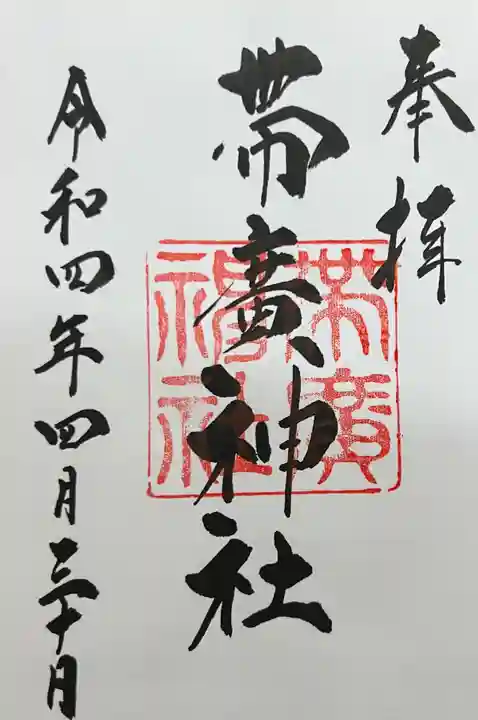 奉拝
帶廣神社
帶廣神社
令和四年四月三十日